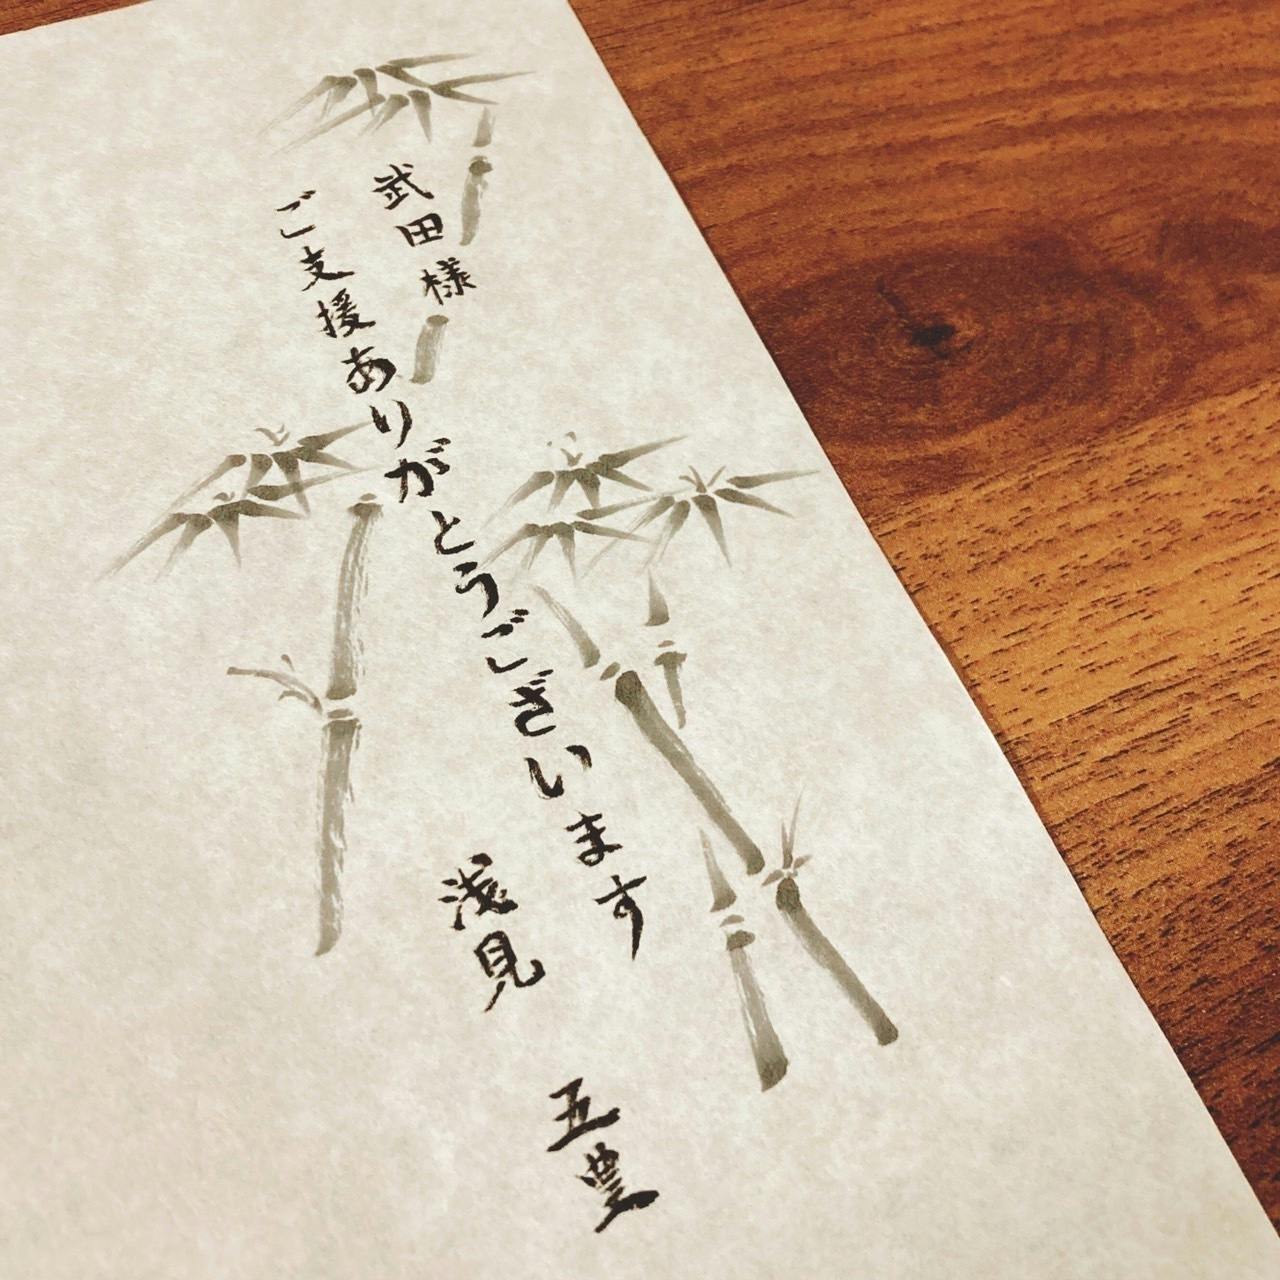 武田様
ご支援ありがとうございます
浅見 五豊